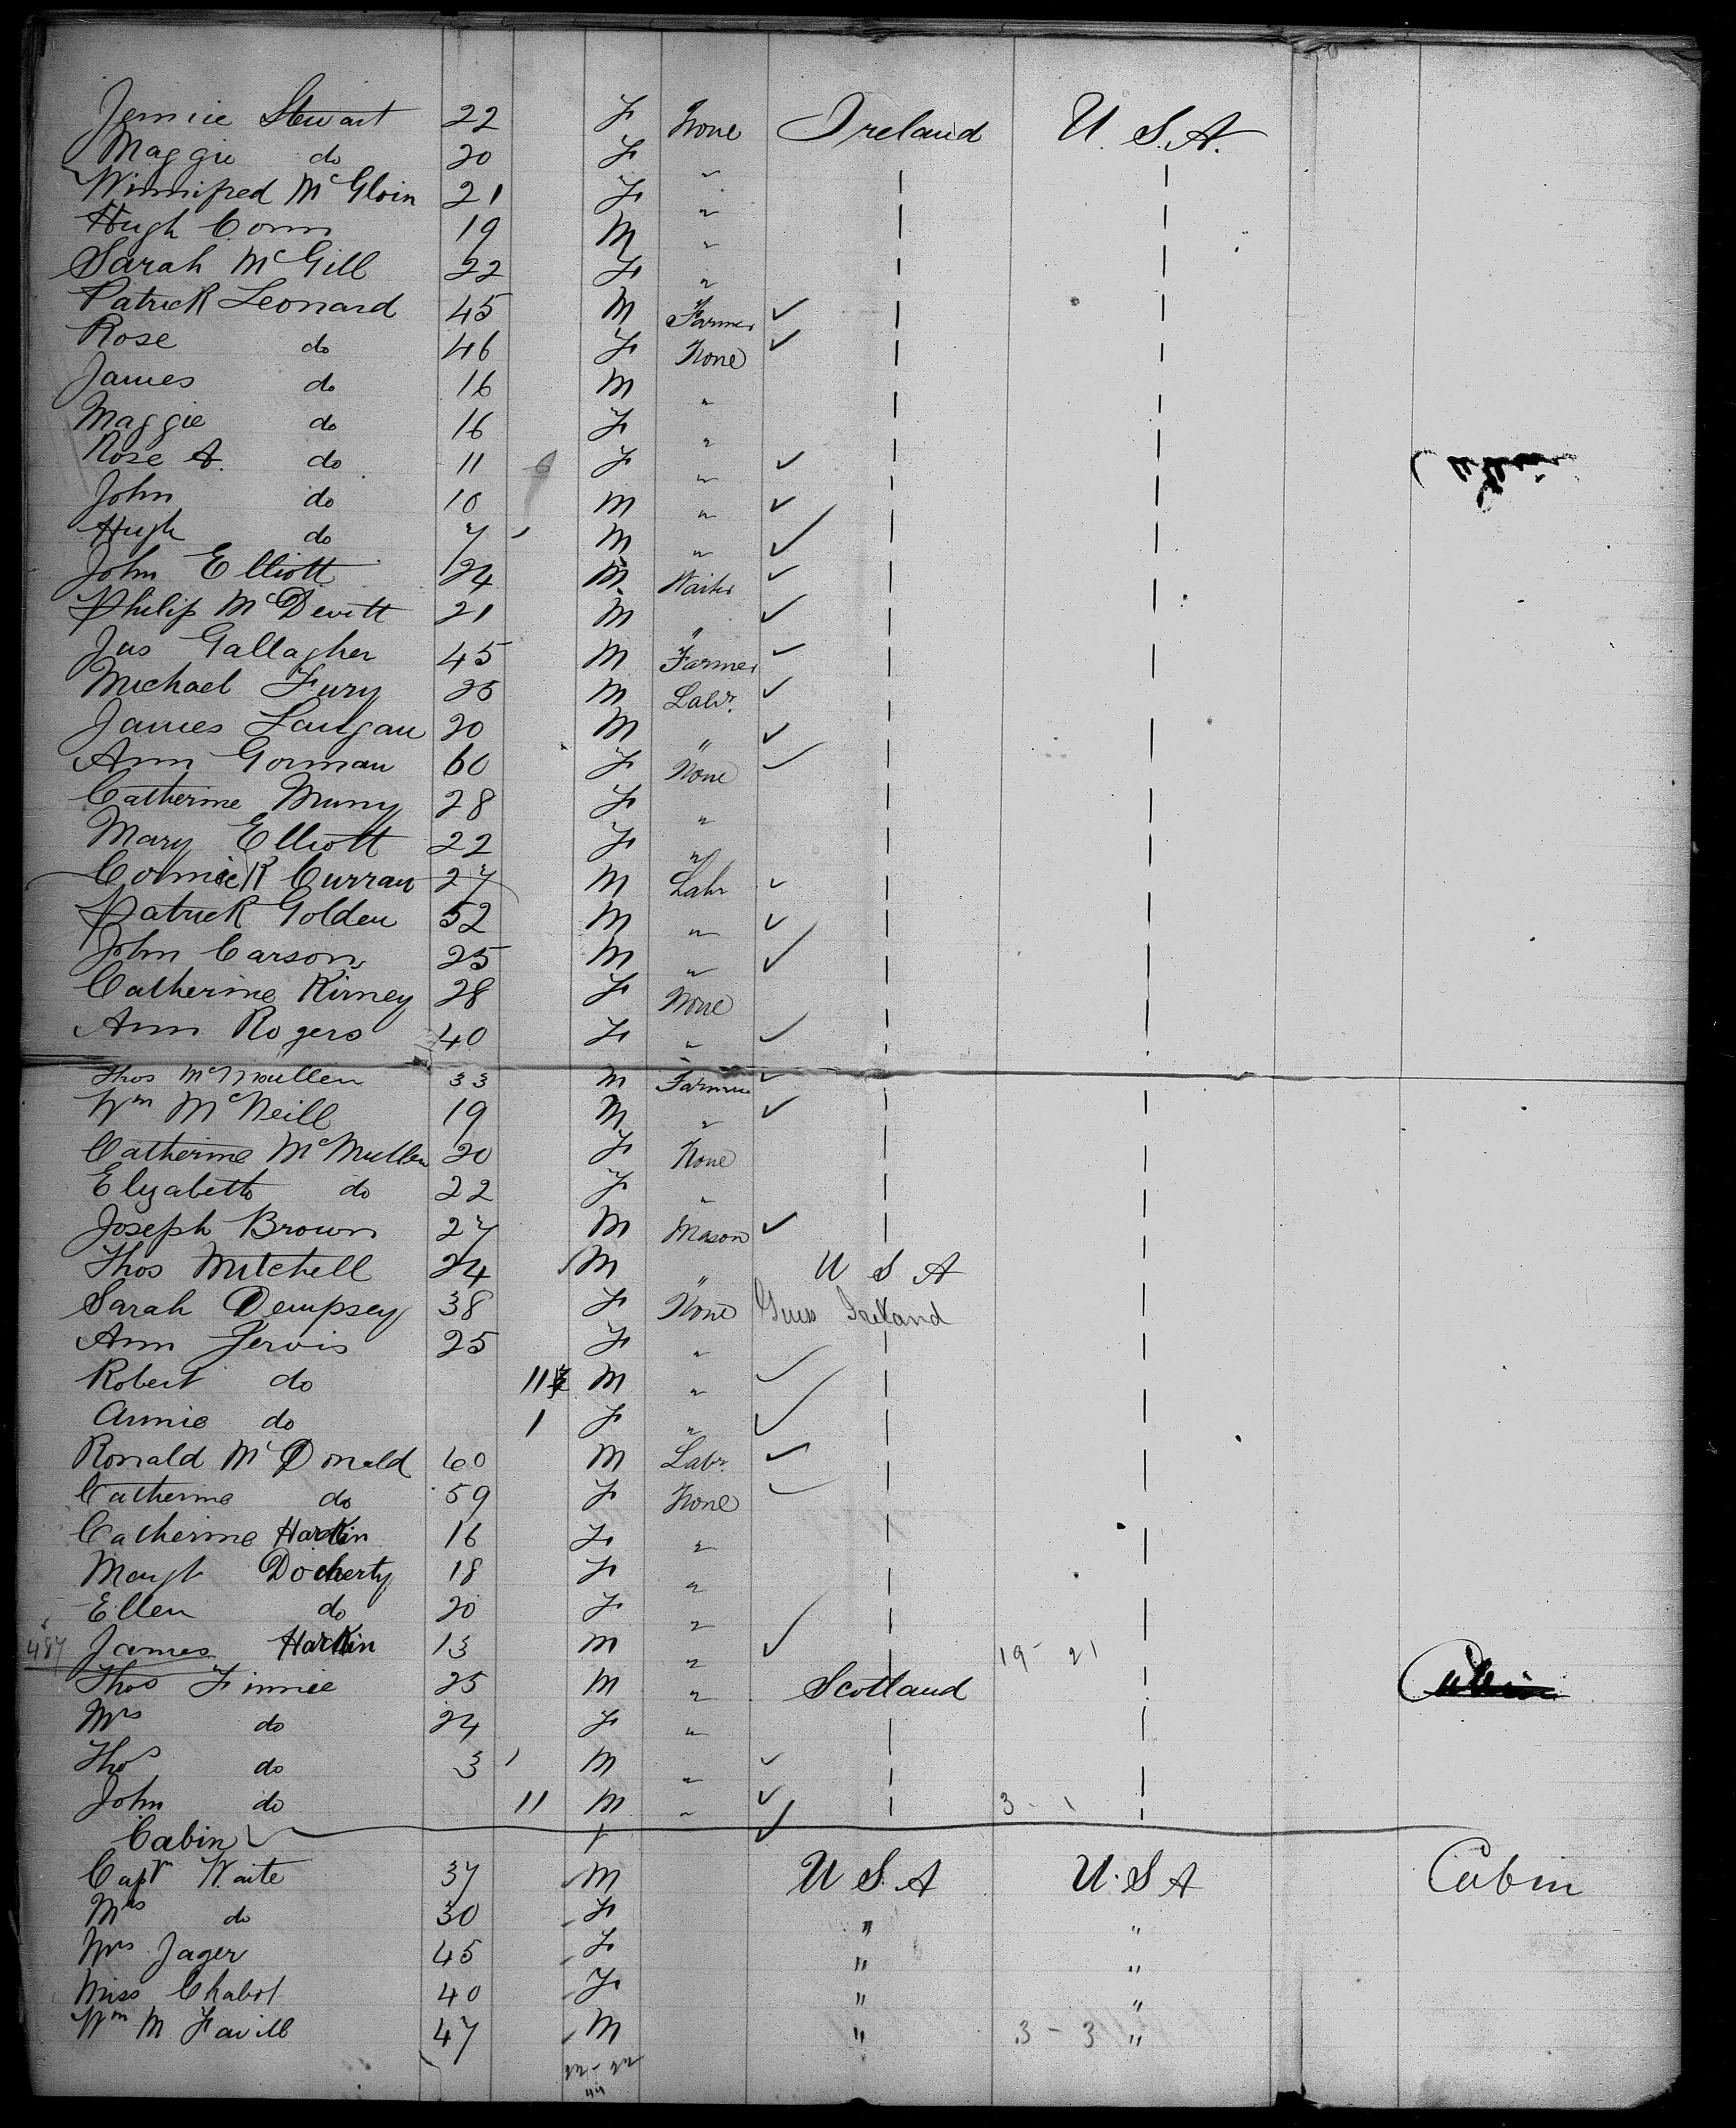 Jennie Stewart 22 F None Ireland U.S.A.
Maggie do 20 F "
Winnifred McGloin 21 F "
Hugh Conn 19 M "
Sarah McGill 22 F "
Patrick Leonard 45 M Farmer ✓
Rose do 46 F None ✓
James do 16 M "
Maggie do 16 F "
Rose A. do 11 F " ✓
John do 10 M " ✓
Hugh do 7 M " ✓
John Elliott 24 M Waiter ✓
Philip McDevitt 21 M " ✓
Jas Gallagher 45 M Farmer ✓
Michael Fury 25 M Labr. ✓
James Langan 20 M " ✓
Ann Gorman 60 F None ✓
Catherine 28 F "
Mary Elliott 22 F "
Cormick Curran 27 M Labr ✓
Patrick Golden 52 M " ✓
John Carson 25 M " ✓
Catherine Kirney 28 F None
Ann Rogers 40 F " ✓
Thos McMullen 33 M Farmer ✓
Wm McNeill 19 M " ✓
Catherine McMullen 20 F None
Elizabeth do 22 F "
Joseph Brown 27 M Mason ✓
Thos Mitchell 24 M " U S A
Sarah Dempsey 38 F None Guess Ireland
Ann Jervis 25 F "
Robert do 11 M " ✓
Annie do 1 F " ✓
Ronald McDonald 60 M Labr. ✓
Catherine do 59 F None ✓
Catherine Harkin 16 F "
Margt Docherty 18 F "
Ellen do 20 F "
487 James Harkin 13 M " ✓ 19 - 21
Thos Finnie 25 M " Scotland
Mrs do 24 F "
Thos do 3 M " ✓
John do 11 M " ✓ 3 - 1
Cabin ✓
Capt Waite 37 M U S. A U. S A Cabin
Mrs do 30 F " "
Mrs Jager 45 F " "
Miss Chabot 40 F " "
Wm M Favill 47 M " 3 - 3 "
22 - 22
44